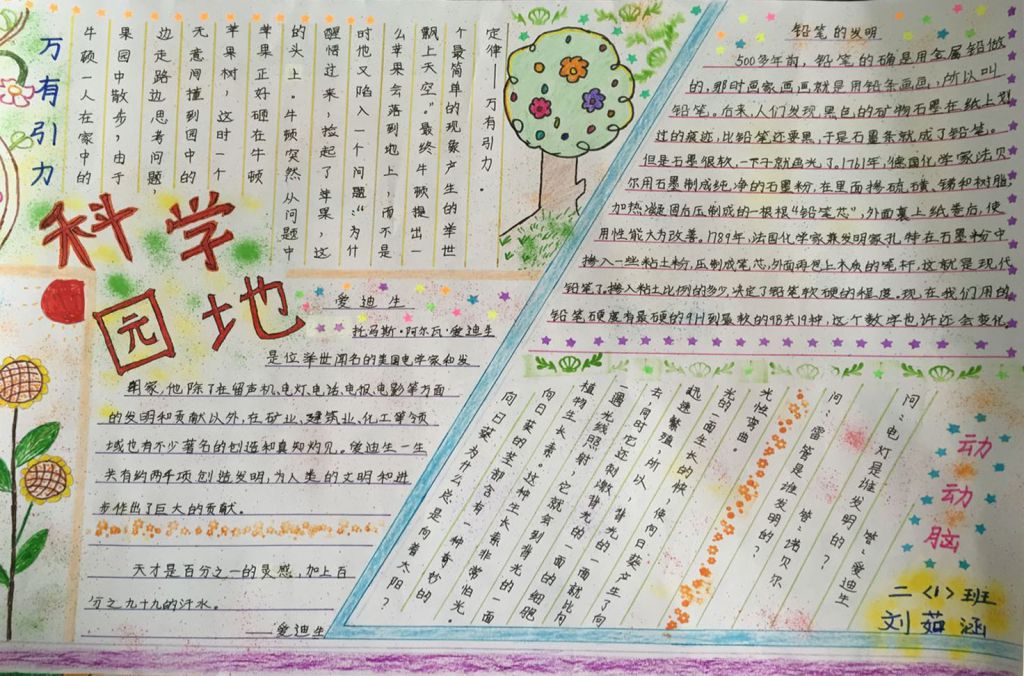 万有引力
牛顿一人在家中的
果园中散步，由于
边走路边思考问题，
无意间撞到园中的
苹果树，这时一个
苹果正好砸在牛顿
的头上。牛顿突然从问题中
醒悟过来，捡起了苹果，这
时他又陷入一个问题：“为什
么苹果会落到地上，而不是
飘上天空。”最终牛顿提出一
个最简单的现象产生的举世
定律——万有引力.
科学
园地
爱迪生
托马斯·阿尔瓦·爱迪生
是位举世闻名的美国电学家和发
明家,他除了在留声机,电灯,电话,电报,电影等方面
的发明和贡献以外,在矿业、建筑业、化工等领
域也有不少著名的创造和真知灼见。爱迪生一生
共有约两千项创造发明,为人类的文明和进
步作出了巨大的贡献。
天才是百分之一的灵感,加上百
分之九十九的汗水。
——爱迪生
铅笔的发明
500多年前,铅笔的确是用金属铅做
的,那时画家画画就是用铅条画画,所以叫
铅笔。后来,人们发现,黑色的矿物石墨在纸上划
过的痕迹,比铅笔还要黑,于是石墨条就成了铅笔。
但是石墨很软,一下子就画光了。1761年,德国化学家法贝
尔用石墨制成纯净的石墨粉,在里面掺硫磺、锑和树脂,
加热凝固后压制成的一根根“铅笔芯”,外面裹上纸卷后,使
用性能大为改善。1789年,法国化学家兼发明家孔特在石墨粉中
掺入一些粘土粉,压制成笔芯,外面再包上木质的笔杆,这就是现代
铅笔了。掺入粘土比例的多少决定了铅笔软硬的程度。现在我们用的
铅笔硬度有最硬的9H到最软的9B共19种,这个数字也许还会变化。
动动脑
向日葵为什么总是向着太阳？
向日葵的茎部含有一种奇妙的
植物生长素。这种生长素非常怕光。
一遇光线照射，它就会到背光的一面
去，同时它还刺激背光的一面的细胞
迅速繁殖，所以，背光的一面就比向
光的一面生长的快，使向日葵产生了向
光性弯曲。
问：雷管是谁发明的？ 答：诺贝尔
问：电灯是谁发明的？ 答：爱迪生
二〈1〉班
刘茹涵